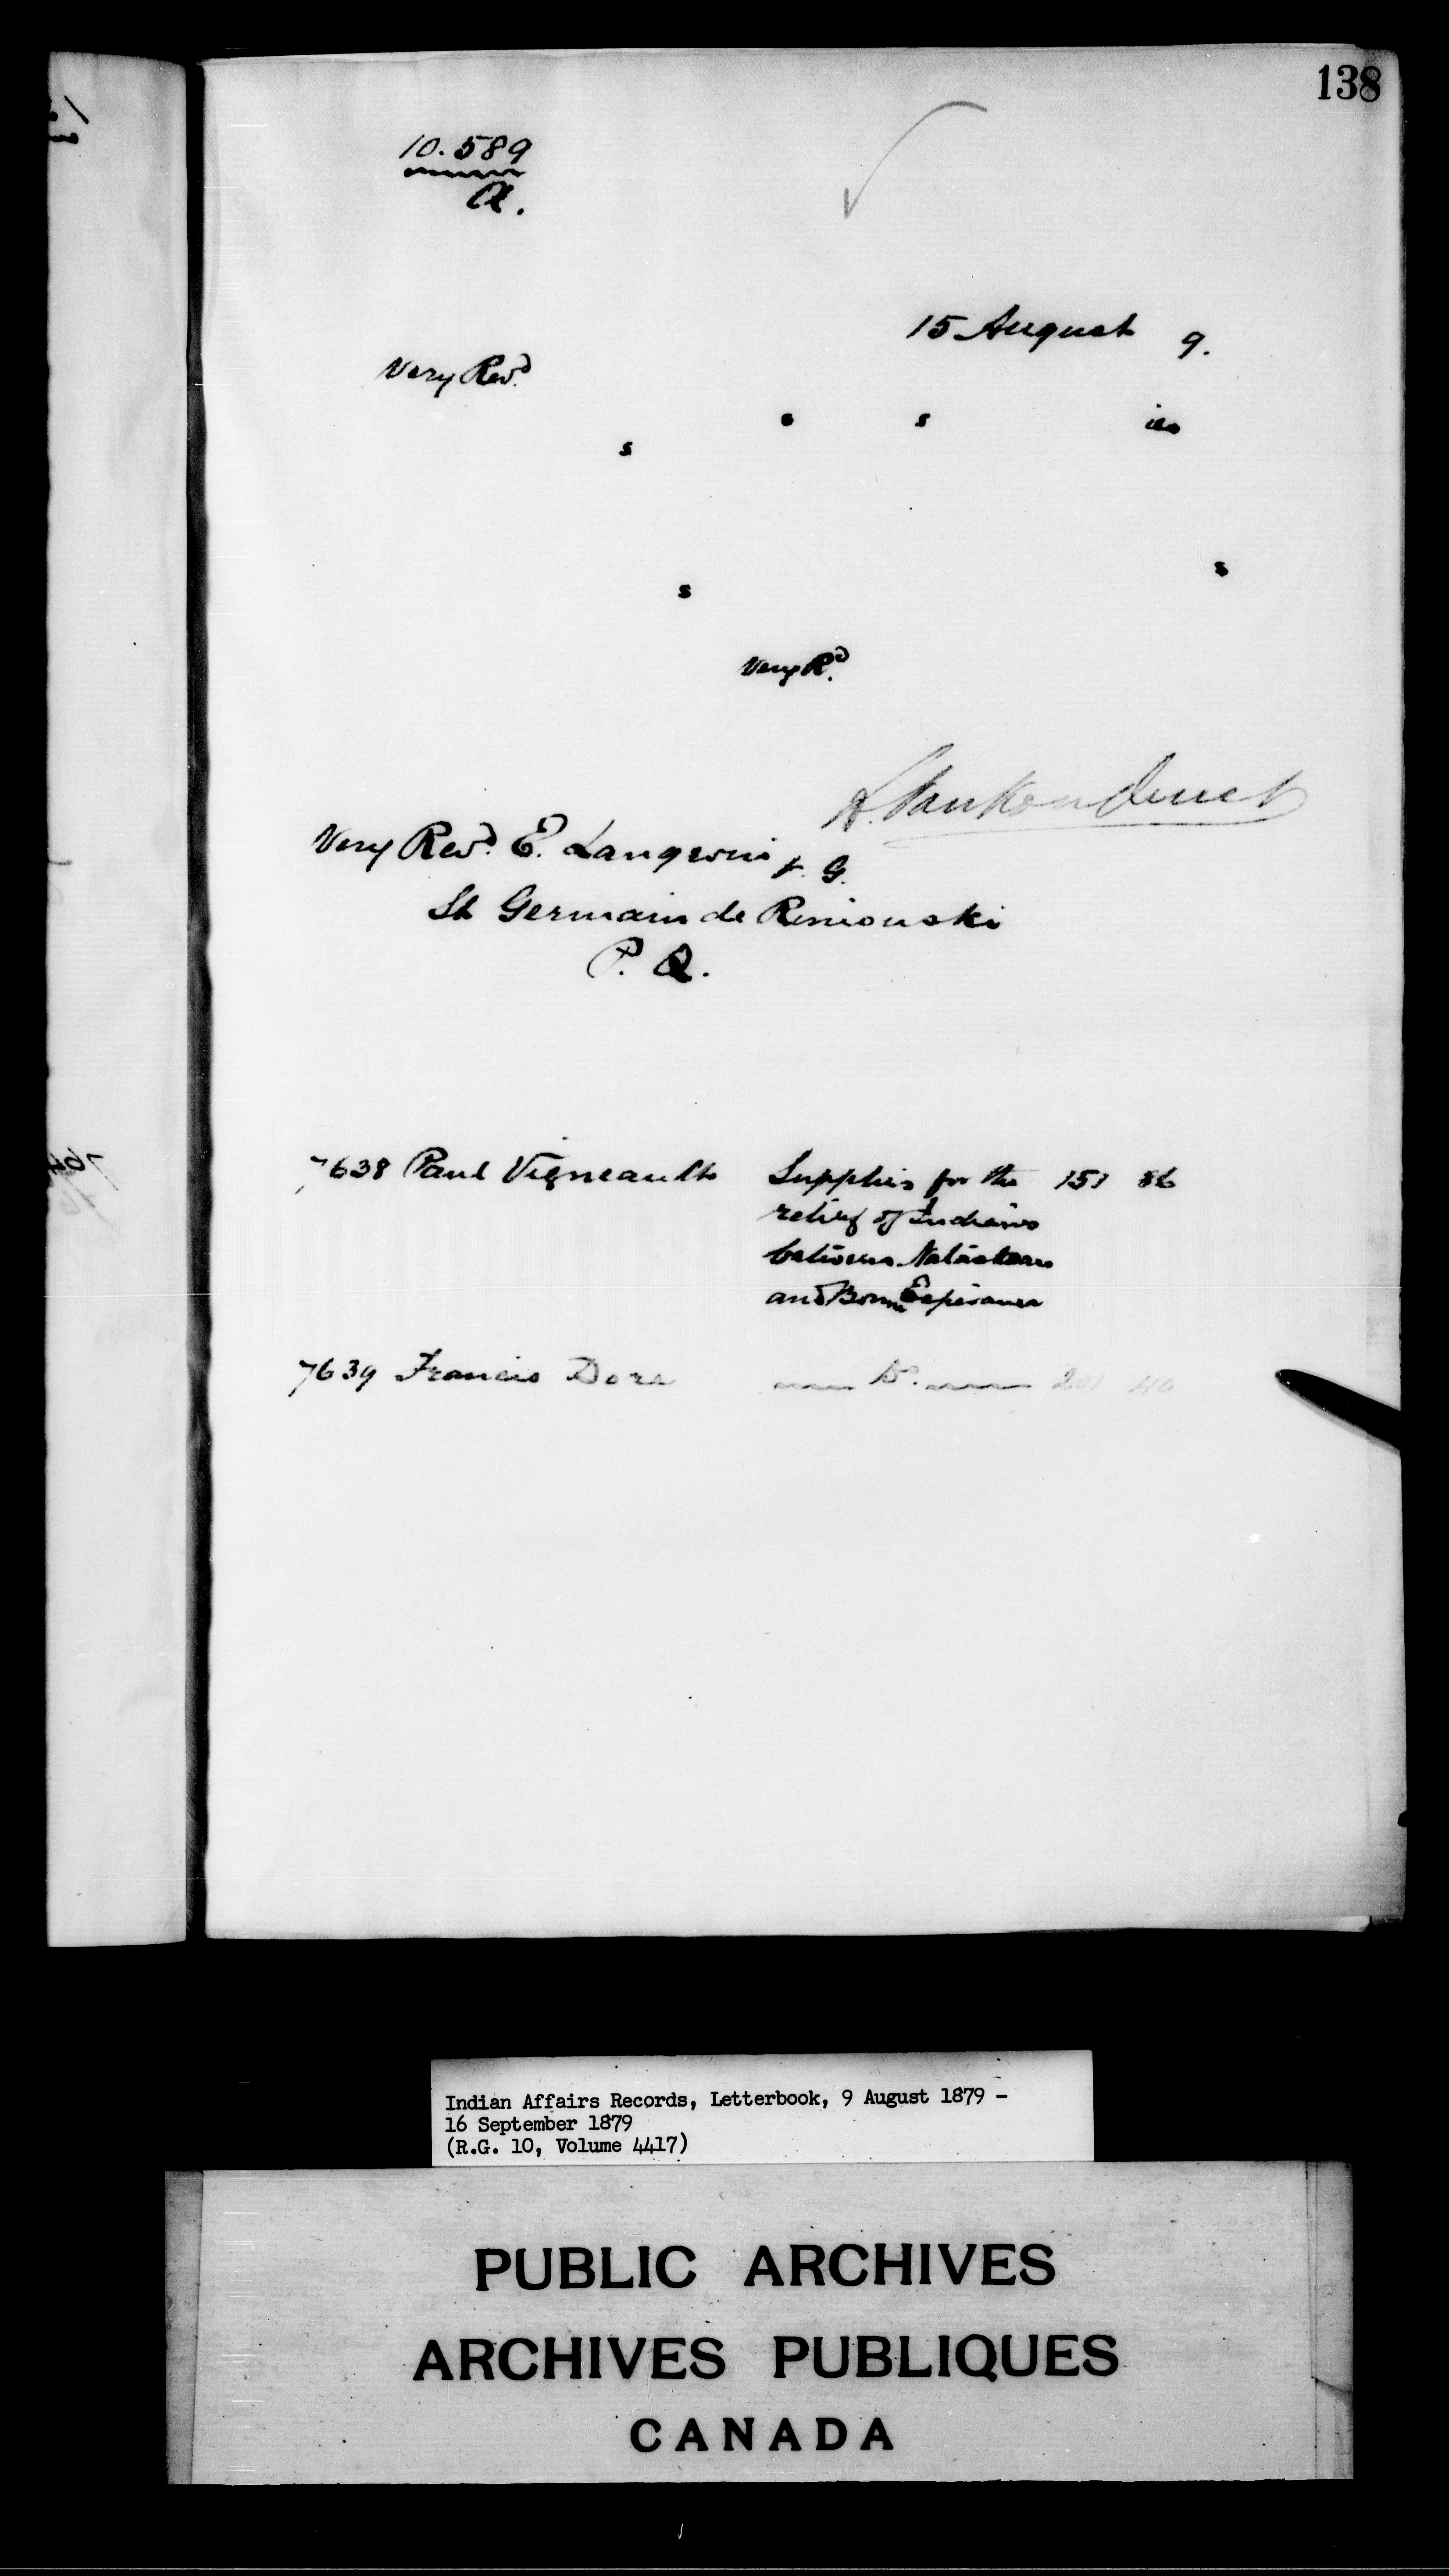 138
10.589
A.
15 August 9.
Very Revd.
s s s ies
s s
Very Rd.
L. Vankoughnet
Very Revd. E. Langevin V. G.
St Germain de Rimouski
P. Q.
7638 Paul Vigneault Supplies for the 151 86
relief of Indians
between Natashkwan
and Bonne Esperance
7639 Francis Dore Do. 201 40
Indian Affairs Records, Letterbook, 9 August 1879 -
16 September 1879
(R.G. 10, Volume 4417)
PUBLIC ARCHIVES
ARCHIVES PUBLIQUES
CANADA